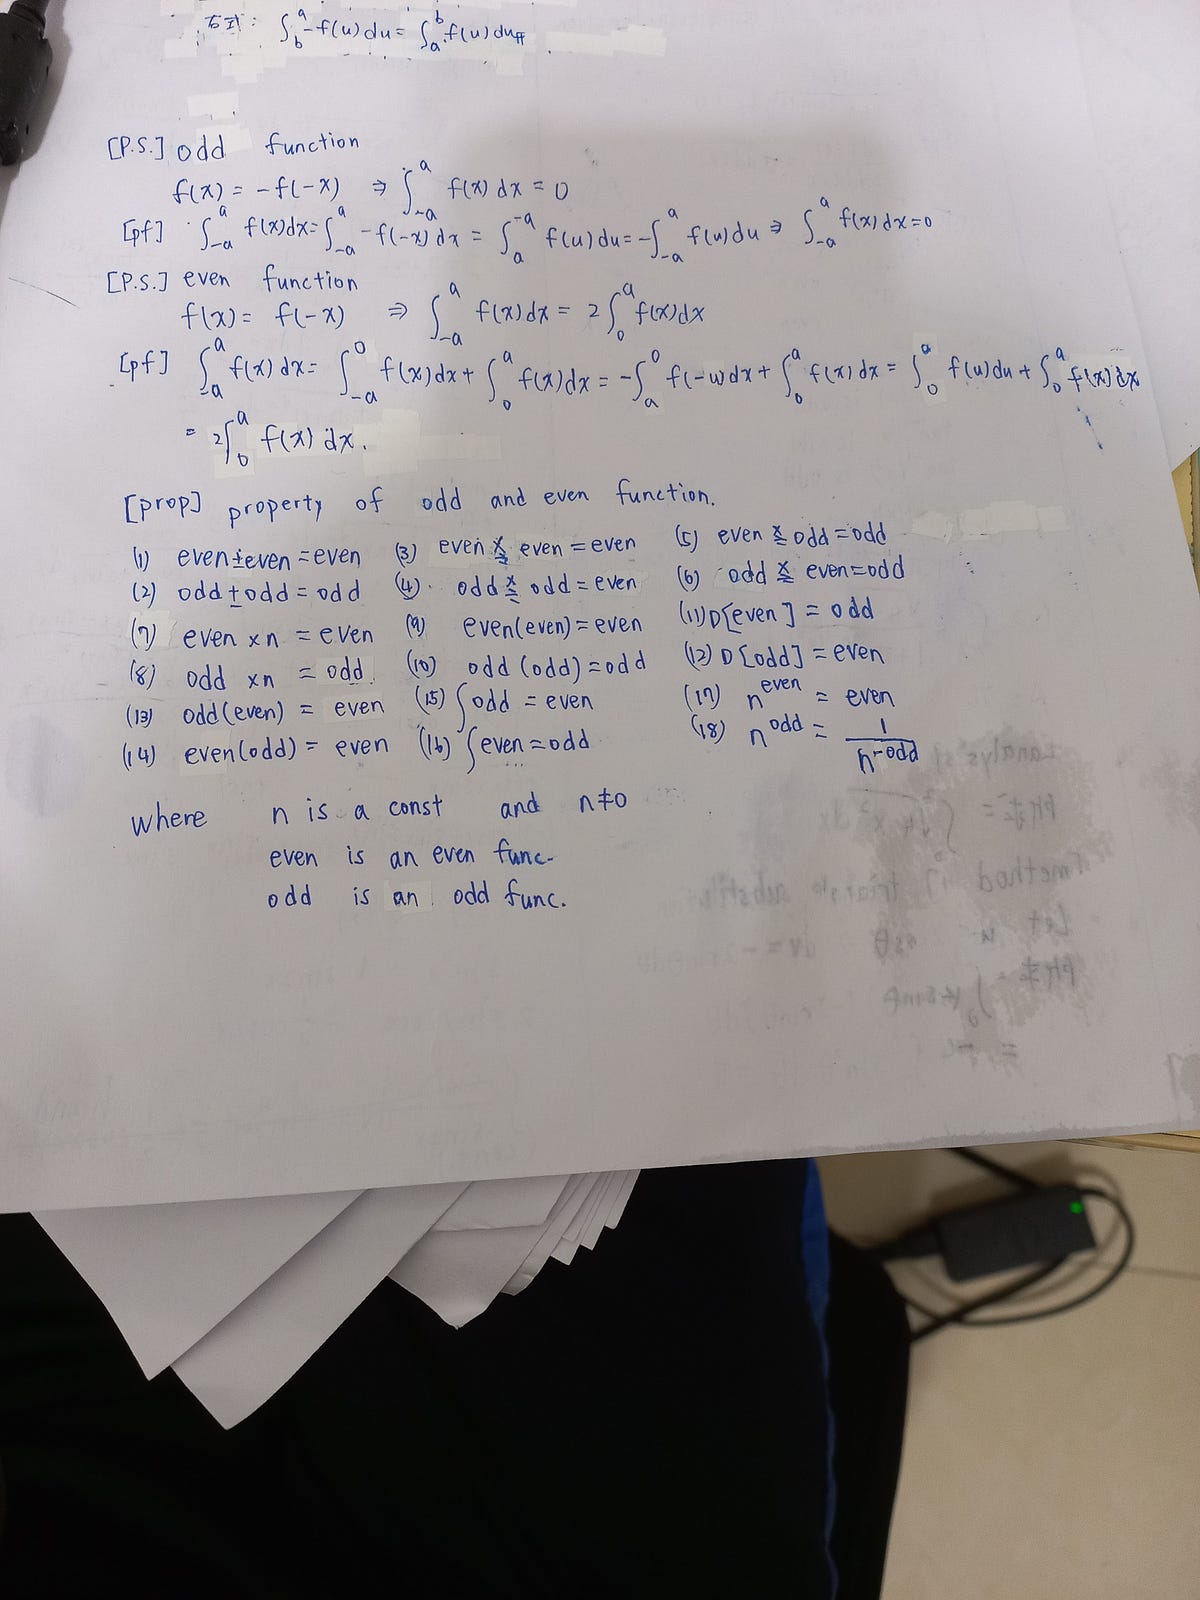 右式: ∫_b^a -f(u)du = ∫_a^b f(u)du
[P.S.] odd function
f(x) = -f(-x) ⇒ ∫_{-a}^a f(x)dx = 0
[pf] ∫_{-a}^a f(x)dx = ∫_{-a}^a -f(-x)dx = ∫_a^{-a} f(u)du = -∫_{-a}^a f(u)du ⇒ ∫_{-a}^a f(x)dx = 0
[P.S.] even function
f(x) = f(-x) ⇒ ∫_{-a}^a f(x)dx = 2∫_0^a f(x)dx
[pf] ∫_{-a}^a f(x)dx = ∫_{-a}^0 f(x)dx + ∫_0^a f(x)dx = -∫_a^0 f(-u)dx + ∫_0^a f(x)dx = ∫_0^a f(u)du + ∫_0^a f(x)dx
= 2∫_0^a f(x)dx.
[prop] property of odd and even function.
(1) even±even = even (3) even ×÷ even = even (5) even ×÷ odd = odd
(2) odd±odd = odd (4) odd ×÷ odd = even (6) odd ×÷ even = odd
(7) even ×n = even (9) even(even) = even (11) D[even] = odd
(8) odd ×n = odd (10) odd(odd) = odd (12) D[odd] = even
(13) odd(even) = even (15) ∫odd = even (17) n^even = even
(14) even(odd) = even (16) ∫even = odd (18) n^odd = 1/n^-odd
where n is a const and n≠0
even is an even func.
odd is an odd func.